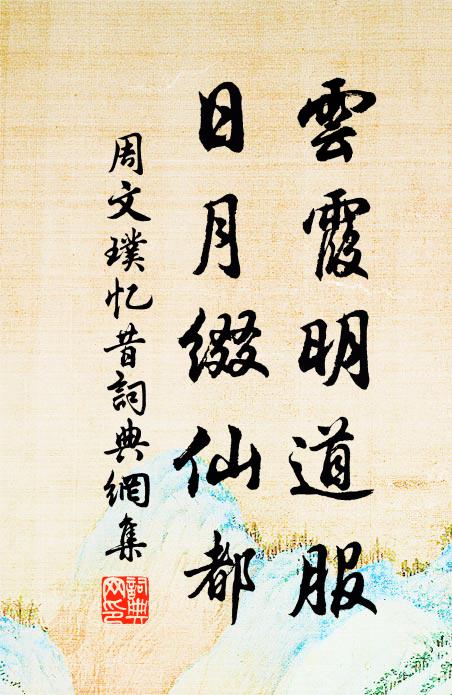 雲霞明道服
日月缀仙都
周文璞忆昔詞典網集
詞典網印